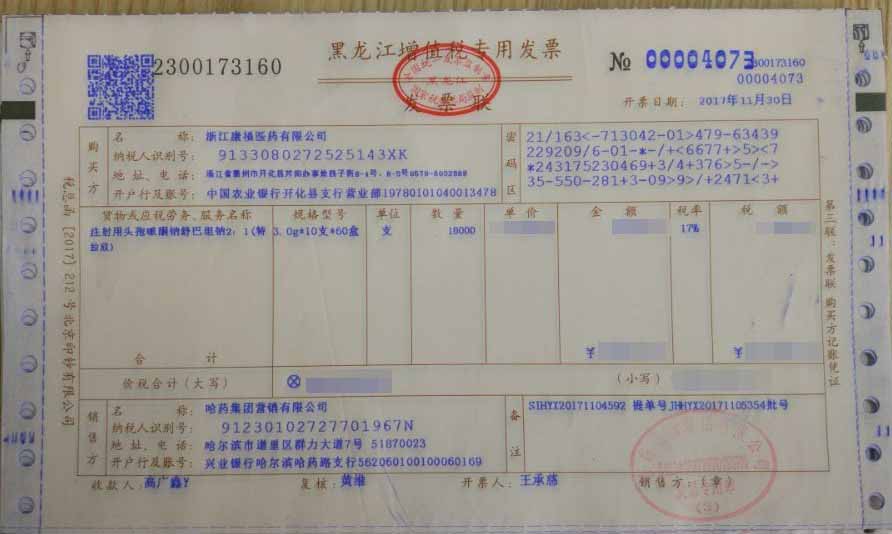 2300173160
黑龙江增值税专用发票
发票联
№ 00004073
2300173160
00004073
开票日期: 2017年11月30日
税总函〔2017〕212号北京印钞有限公司
购买方
名 称: 浙江康福医药有限公司
纳税人识别号: 9133080272525143XK
地址、电话:
开户行及账号: 中国农业银行开化县支行营业部19780101040013478
密码区
21/163<-713042-01>479-63439
229209/6-01-*-/+<6677+>5><7
*243175230469+3/4+376>5-/->
35-550-281+3-09>9>/+2471<3+
货物或应税劳务、服务名称 规格型号 单位 数量 单价 金额 税率 税额
注射用头孢哌酮钠舒巴坦钠2:1(特 3.0g*10支*60盒 支 18000 17%
合 计 ¥ ¥
价税合计(大写) ⊗ (小写)
第三联:发票联 购买方记账凭证
销售方
名 称: 哈药集团营销有限公司
纳税人识别号: 91230102727701967N
地址、电话: 哈尔滨市道里区群力大道7号 51870023
开户行及账号: 兴业银行哈尔滨哈药路支行562060100100060169
备注
SIHYX20171104592 账单号JHHYX20171105354批号
收款人: 高广鑫Y 复核: 黄维 开票人: 王承慈 销售方:(章)